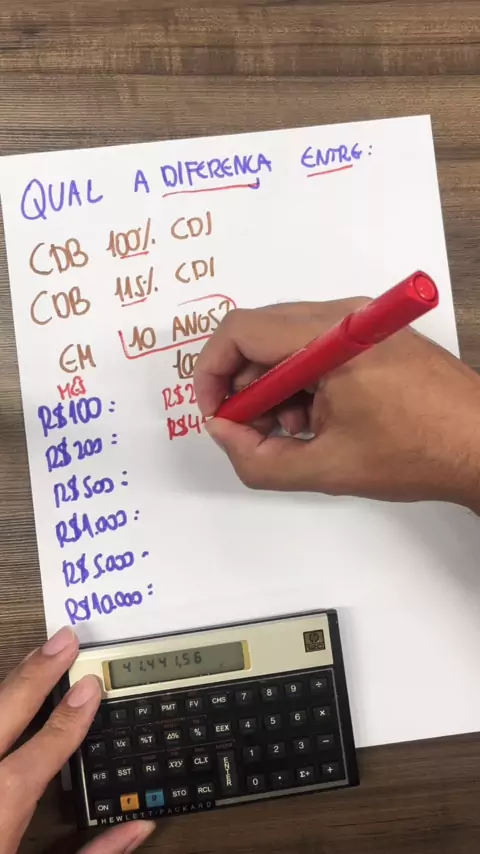 QUAL A DIFERENÇA ENTRE:
CDB 100% CDI
CDB 115% CDI
EM 10 ANOS?
MÊS
R$100: R$2
R$200: R$4
R$500:
R$1.000:
R$5.000:
R$10.000:
41,441,56
i PV PMT FV CHS 7 8 9 ÷
yˣ 1/x %T Δ% % EEX 4 5 6 ×
R/S SST R↓ X≷Y CLX ENTER 1 2 3 −
ON f g STO RCL 0 · Σ+ +
HEWLETT·PACKARD
hp